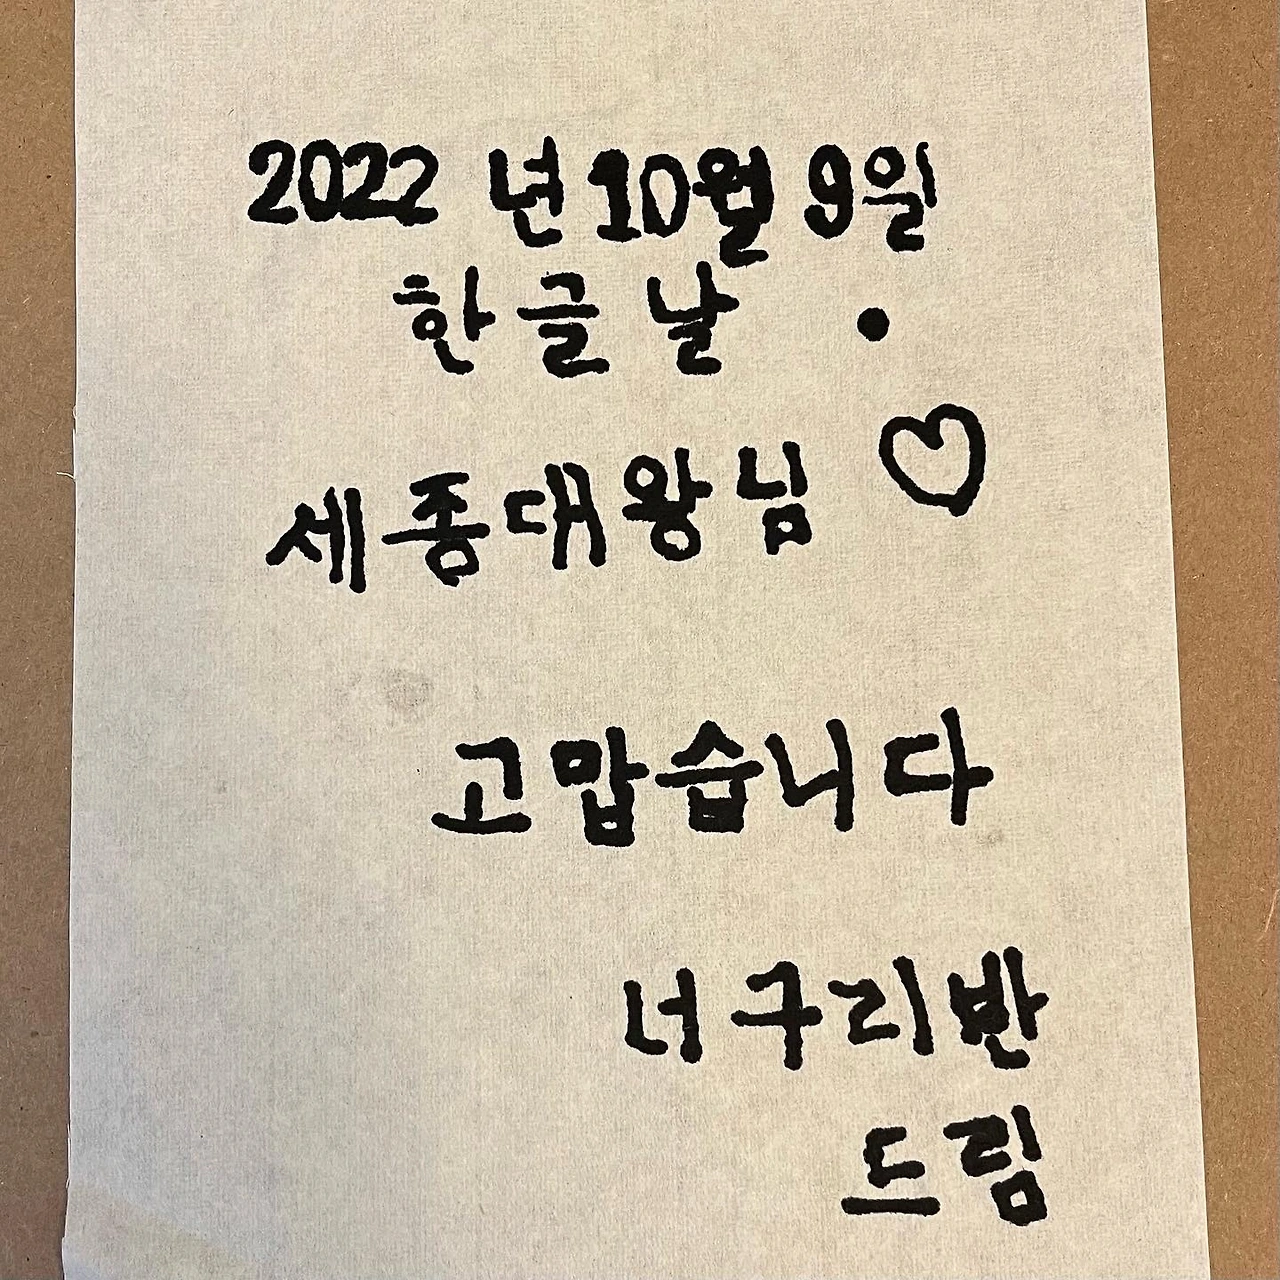 2022년 10월 9일
한글날
세종대왕님 ♡
고맙습니다
너구리반
드림